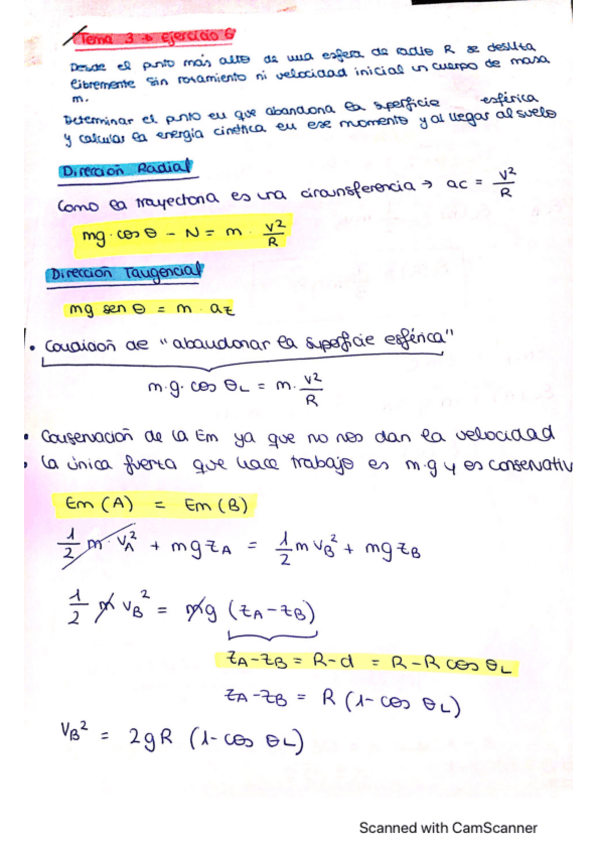 Tema 3 → Ejercicio 6
Desde el punto más alto de una esfera de radio R se desliza
libremente sin rozamiento ni velocidad inicial un cuerpo de masa
m.
Determinar el punto en que abandona la superficie esférica
y calcular la energía cinética en ese momento y al llegar al suelo
Dirección Radial
Como la trayectoria es una circunsferencia → ac = v²/R
mg·cos θ − N = m · v²/R
Dirección Tangencial
mg sen θ = m · at
• Condición de "abandonar la superficie esférica"
m·g· cos θL = m· v²/R
• Conservación de la Em ya que no nos dan la velocidad
• La única fuerza que hace trabajo es m·g y es conservativ
Em (A) = Em (B)
1/2 m · vA² + mg zA = 1/2 m vB² + mg zB
1/2 m vB² = mg (zA − zB)
zA − zB = R − d = R − R cos θL
zA − zB = R (1 − cos θL)
vB² = 2gR (1 − cos θL)
Scanned with CamScanner